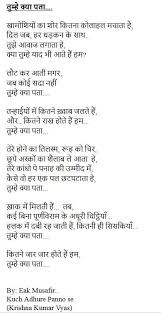 तुम्हे क्या पता....
खामोशियों का शोर कितना कोलाहल मचाता है,
दिल जब, हर धड़कन के साथ..
तुझे आवाज लगाता है,
क्या तुम्हे याद भी आते हैं हम?
लौट कर आती मगर,
जब कोई सदा नहीं
तुम्हे क्या पता....
तन्हाईयों में कितने ख़्वाब जलते हैं,
और.. कितने राख होते हैं हम...
तुम्हे क्या पता....
तेरे होने का तिलस्म, रूह को चिर,
छुपे अश्कों का सैलाब ले आता है,
तेरे कांधो पे पनाह की उम्मीद में,
कैसे वो हर एक पल छटपटाता है,
तुम्हे क्या पता....
ख़ाक में मिलती हैं... तब,
कई बिना पूर्णविराम के अधूरी चिट्ठियाँ ..
हलक में दबी रह जाती हैं, कितनी ही सिसकियाँ...
तुम्हे क्या पता....
कितने जार जार होते हैं हम,
तुम्हे क्या पता....
By: Eak Musafir..
Kuch Adhure Panno se
(Krishna Kumar Vyas)